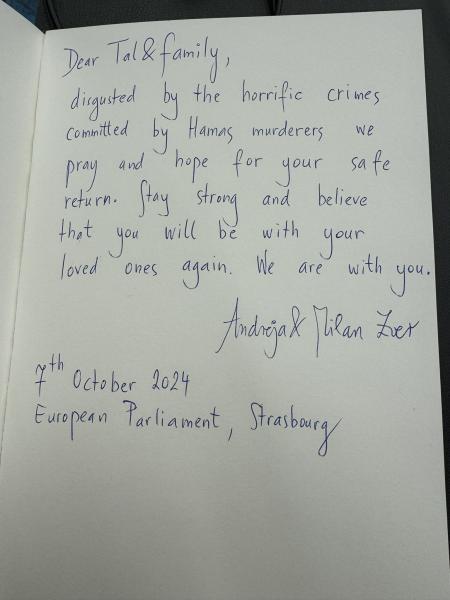 Dear Tal & family,
disgusted by the horrific crimes
committed by Hamas murderers we
pray and hope for your safe
return. Stay strong and believe
that you will be with your
loved ones again. We are with you.
Andreja & Milan Zver
7th October 2024
European Parliament, Strasbourg